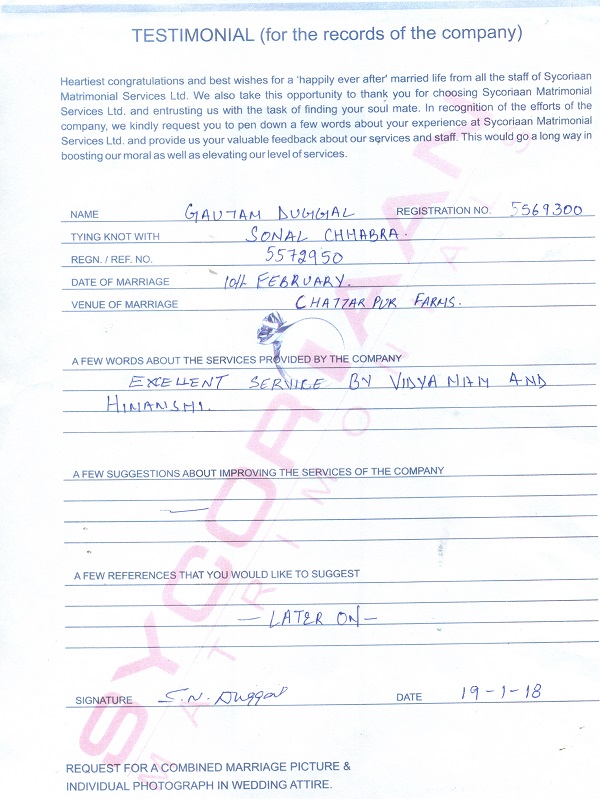 TESTIMONIAL (for the records of the company)
Heartiest congratulations and best wishes for a 'happily ever after' married life from all the staff of Sycoriaan
Matrimonial Services Ltd. We also take this opportunity to thank you for choosing Sycoriaan Matrimonial
Services Ltd. and entrusting us with the task of finding your soul mate. In recognition of the efforts of the
company, we kindly request you to pen down a few words about your experience at Sycoriaan Matrimonial
Services Ltd. and provide us your valuable feedback about our services and staff. This would go a long way in
boosting our moral as well as elevating our level of services.
NAME GAUTAM DUGGAL REGISTRATION NO. 5569300
TYING KNOT WITH SONAL CHHABRA.
REGN. / REF. NO. 5572950
DATE OF MARRIAGE 10th FEBRUARY.
VENUE OF MARRIAGE CHATTARPUR FARMS.
A FEW WORDS ABOUT THE SERVICES PROVIDED BY THE COMPANY
EXCELLENT SERVICE BY VIDYA MAM AND
HIMANSHI.
A FEW SUGGESTIONS ABOUT IMPROVING THE SERVICES OF THE COMPANY
A FEW REFERENCES THAT YOU WOULD LIKE TO SUGGEST
— LATER ON —
SIGNATURE S.N. Duggal DATE 19-1-18
REQUEST FOR A COMBINED MARRIAGE PICTURE &
INDIVIDUAL PHOTOGRAPH IN WEDDING ATTIRE.
SYCORIAAN
MATRIMONIALS